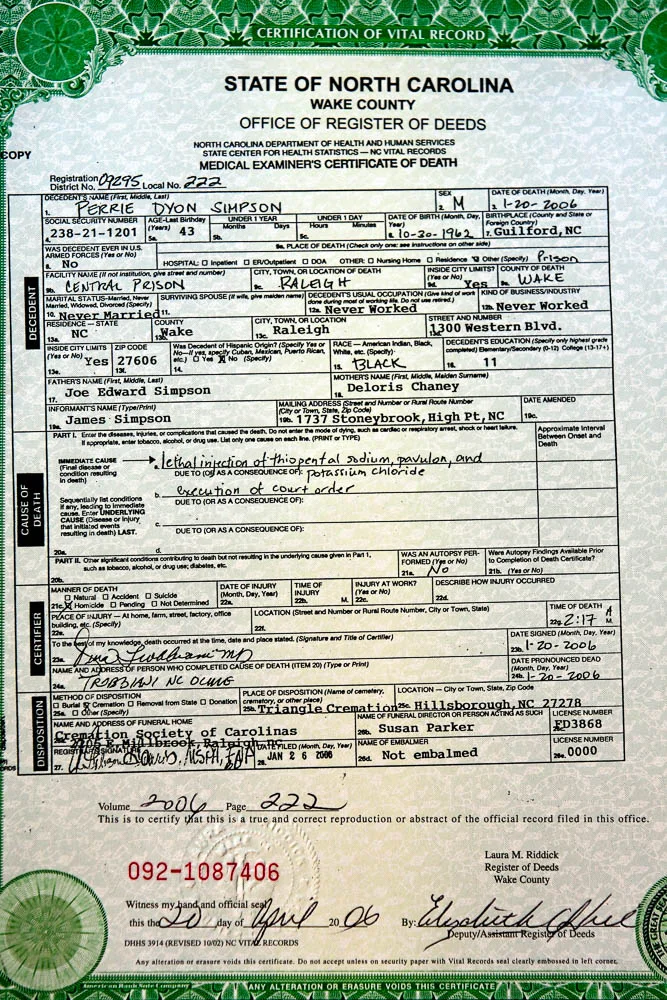 CERTIFICATION OF VITAL RECORD
STATE OF NORTH CAROLINA
WAKE COUNTY
OFFICE OF REGISTER OF DEEDS
COPY
NORTH CAROLINA DEPARTMENT OF HEALTH AND HUMAN SERVICES
STATE CENTER FOR HEALTH STATISTICS — NC VITAL RECORDS
MEDICAL EXAMINER'S CERTIFICATE OF DEATH
Registration District No. 09295 Local No. 222
DECEDENT'S NAME (First, Middle, Last) SEX DATE OF DEATH (Month, Day, Year)
1. PERRIE DYON SIMPSON 2. M 3. 1-20-2006
SOCIAL SECURITY NUMBER AGE-Last Birthday (Years) UNDER 1 YEAR Months Days UNDER 1 DAY Hours Minutes DATE OF BIRTH (Month, Day, Year) BIRTHPLACE (County and State or Foreign Country)
238-21-1201 5a. 43 5b. 5c. 6. 10-30-1962 7. Guilford, NC
WAS DECEDENT EVER IN U.S. ARMED FORCES (Yes or No) 9a. PLACE OF DEATH (Check only one: see instructions on other side)
8. No HOSPITAL: Inpatient ER/Outpatient DOA OTHER: Nursing Home Residence Other (Specify) Prison
FACILITY NAME (If not institution, give street and number) CITY, TOWN, OR LOCATION OF DEATH INSIDE CITY LIMITS? (Yes or No) COUNTY OF DEATH
9b. CENTRAL PRISON 9c. RALEIGH 9d. Yes 9e. WAKE
MARITAL STATUS-Married, Never Married, Widowed, Divorced (Specify) SURVIVING SPOUSE (If wife, give maiden name) DECEDENT'S USUAL OCCUPATION (Give kind of work done during most of working life. Do not use retired.) KIND OF BUSINESS/INDUSTRY
10. Never Married 11. 12a. Never Worked 12b. Never Worked
RESIDENCE — STATE COUNTY CITY, TOWN, OR LOCATION STREET AND NUMBER
13a. NC Wake Raleigh 1300 Western Blvd.
INSIDE CITY LIMITS (Yes or No) ZIP CODE Was Decedent of Hispanic Origin? (Specify Yes or No—If yes, specify Cuban, Mexican, Puerto Rican, etc.) Yes X No (Specify) RACE — American Indian, Black, White, etc. (Specify) DECEDENT'S EDUCATION (Specify only highest grade completed) Elementary/Secondary (0-12) College (13-17+)
13e. Yes 13f. 27606 14. 15. BLACK 16. 11
FATHER'S NAME (First, Middle, Last) MOTHER'S NAME (First, Middle, Maiden Surname)
17. Joe Edward Simpson Deloris Chaney
INFORMANT'S NAME (Type/Print) MAILING ADDRESS (Street and Number or Rural Route Number (City or Town, State, Zip Code) DATE AMENDED
19a. James Simpson 19b. 1737 Stoneybrook, High Pt, NC 19c.
PART I. Enter the diseases, injuries, or complications that caused the death. Do not enter the mode of dying, such as cardiac or respiratory arrest, shock or heart failure.
If appropriate, enter tobacco, alcohol, or drug use. List only one cause on each line. (PRINT or TYPE)
Approximate Interval Between Onset and Death
IMMEDIATE CAUSE (Final disease or condition resulting in death) a. lethal injection of thiopental sodium, pavulon, and
DUE TO (OR AS A CONSEQUENCE OF): potassium chloride
Sequentially list conditions if any, leading to immediate cause. Enter UNDERLYING CAUSE (Disease or injury that initiated events resulting in death) LAST.
b. execution of court order
DUE TO (OR AS A CONSEQUENCE OF):
c.
DUE TO (OR AS A CONSEQUENCE OF):
20a. d.
PART II. Other significant conditions contributing to death but not resulting in the underlying cause given in Part 1, such as tobacco, alcohol, or drug use; diabetes, etc.
20b.
WAS AN AUTOPSY PERFORMED (Yes or No) Were Autopsy Findings Available Prior to Completion of Death Certificate?
21a. No 21b. (Yes or No)
MANNER OF DEATH DATE OF INJURY (Month, Day, Year) TIME OF INJURY INJURY AT WORK? (Yes or No) DESCRIBE HOW INJURY OCCURRED
Natural Accident Suicide
21c. X Homicide Pending Not Determined 22a. 22b. M. 22c. 22d.
PLACE OF INJURY — At home, farm, street, factory, office building, etc. (Specify) LOCATION (Street and Number or Rural Route Number, City or Town, State) TIME OF DEATH
22e. 22f. 22g. 2:17 A M.
To the best of my knowledge, death occurred at the time, date and place stated. (Signature and Title of Certifier) DATE SIGNED (Month, Day, Year)
23a. 23b. 1-20-2006
NAME AND ADDRESS OF PERSON WHO COMPLETED CAUSE OF DEATH (ITEM 20) (Type or Print) DATE PRONOUNCED DEAD (Month, Day, Year)
24a. 24b. 1-20-2006
METHOD OF DISPOSITION PLACE OF DISPOSITION (Name of cemetery, crematory, or other place) LOCATION — City or Town, State, Zip Code
Burial Cremation Removal from State Donation
25a. Other (Specify) 25b. Triangle Cremation 25c. Hillsborough, NC 27278
NAME AND ADDRESS OF FUNERAL HOME NAME OF FUNERAL DIRECTOR OR PERSON ACTING AS SUCH LICENSE NUMBER
Cremation Society of Carolinas 26b. Susan Parker FD3868
Millbrook, Raleigh
REGISTRAR'S SIGNATURE DATE FILED (Month, Day, Year) NAME OF EMBALMER LICENSE NUMBER
27. 28. JAN 26 2006 26d. Not embalmed 26e. 0000
DECEDENT
CAUSE OF DEATH
CERTIFIER
DISPOSITION
Volume 2006 Page 222
This is to certify that this is a true and correct reproduction or abstract of the official record filed in this office.
092-1087406
Laura M. Riddick
Register of Deeds
Wake County
Witness my hand and official seal
this the 20 day of April 2006 By:
Deputy/Assistant Register of Deeds
DHHS 3914 (REVISED 10/02) NC VITAL RECORDS
Any alteration or erasure voids this certificate. Do not accept unless on security paper with Vital Records seal clearly embossed in left corner.
American Bank Note Company
ANY ALTERATION OR ERASURE VOIDS THIS CERTIFICATE